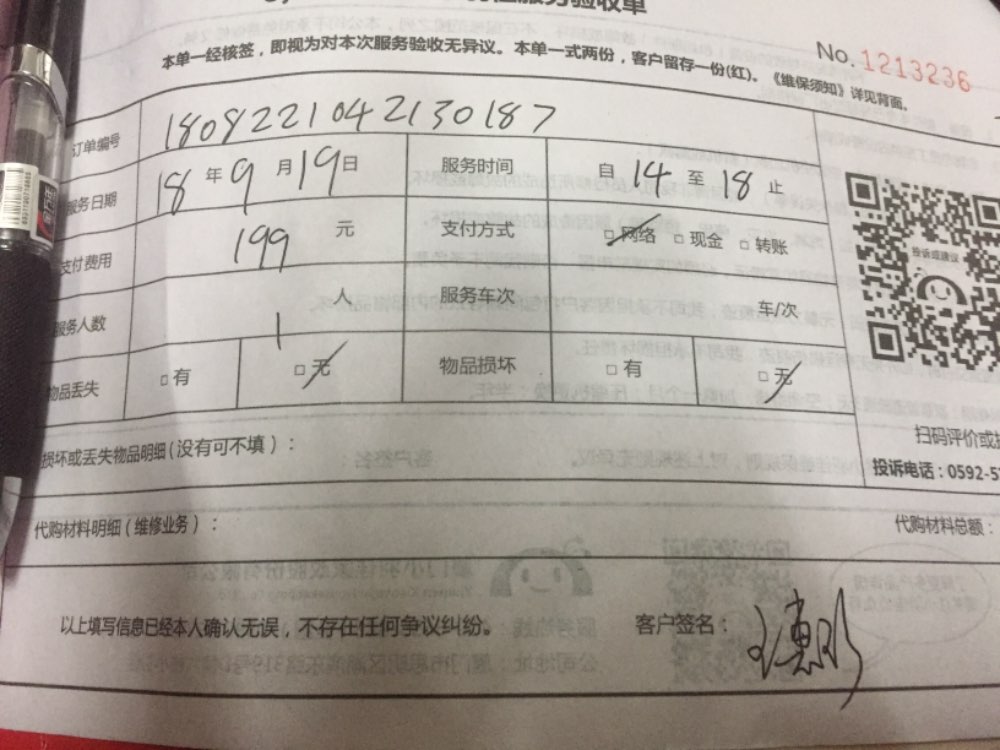 服务验收单
本单一经核签，即视为对本次服务验收无异议。本单一式两份，客户留存一份(红)。《维保须知》详见背面。
No. 1213236
订单编号 1808221042130187
服务日期 18 年 9 月 19 日 服务时间 自 14 至 18 止
支付费用 199 元 支付方式 □ 网络 □ 现金 □ 转账
服务人数 1 人 服务车次 车/次
物品丢失 □ 有 □ 无 物品损坏 □ 有 □ 无
投诉或建议
扫码评价或
损坏或丢失物品明细(没有可不填)：
投诉电话：0592-5
代购材料明细(维修业务)：
代购材料总额：
以上填写信息已经本人确认无误，不存在任何争议纠纷。
客户签名：